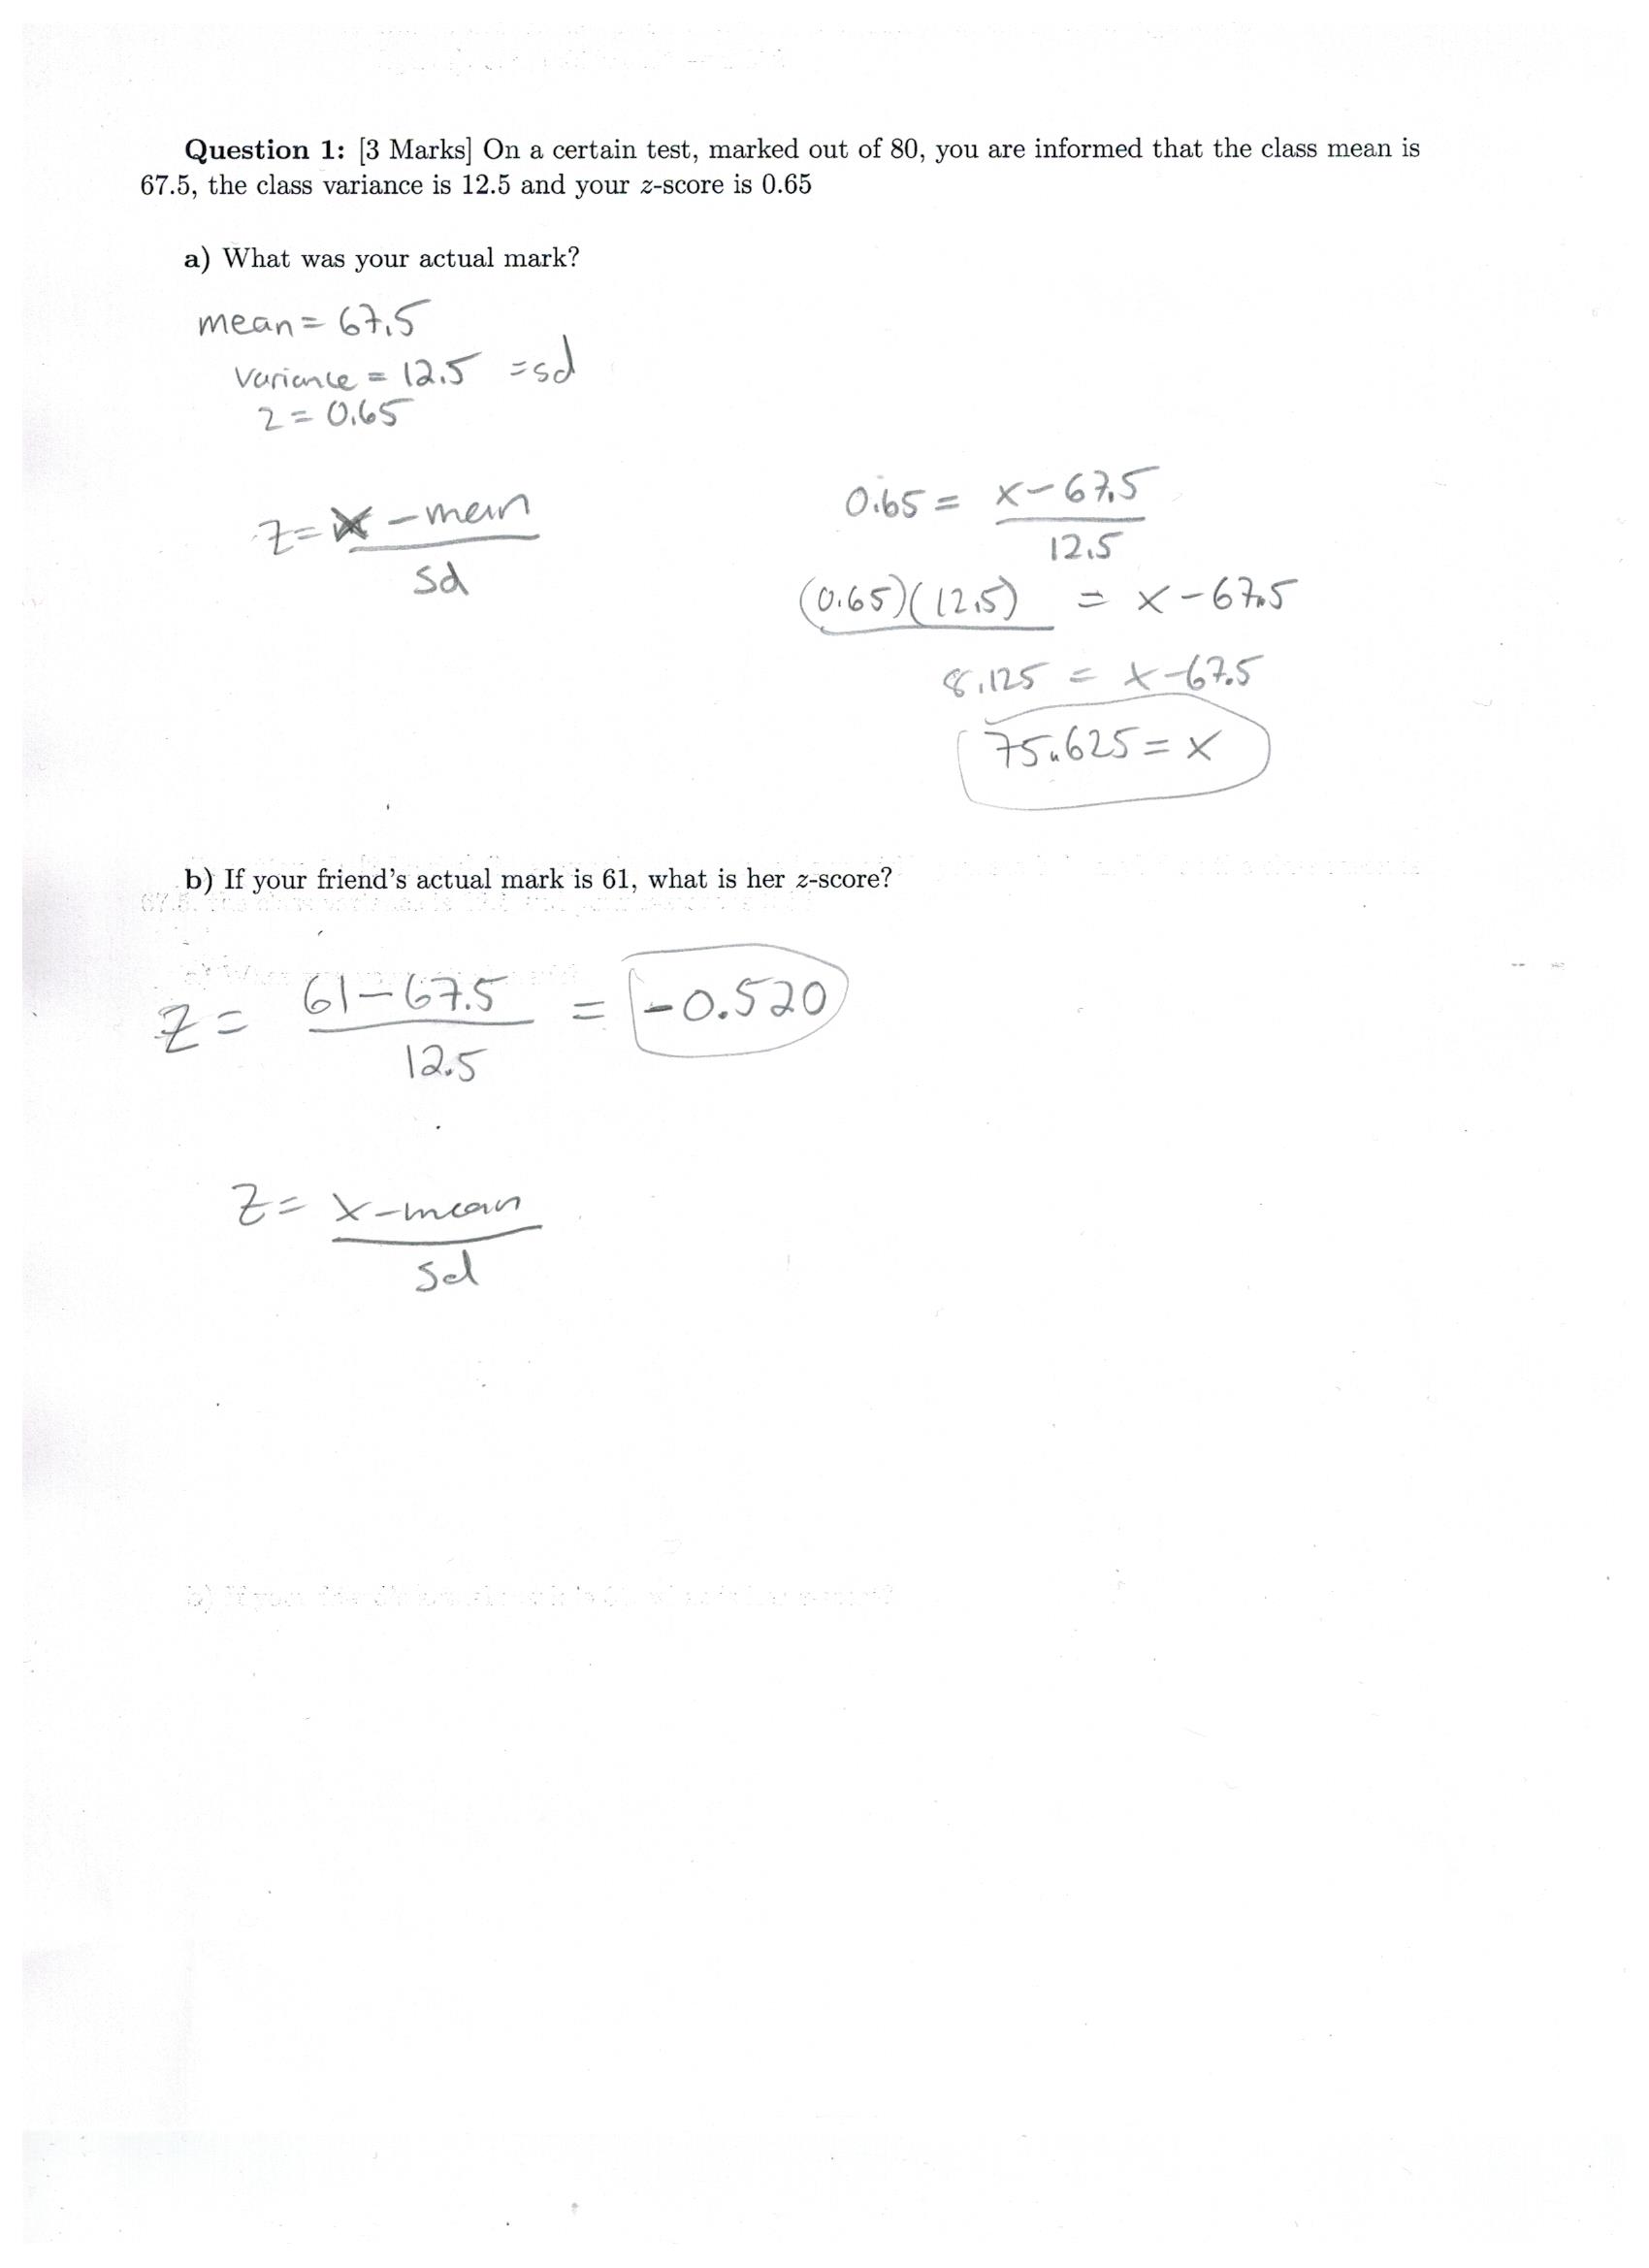 Question 1: [3 Marks] On a certain test, marked out of 80, you are informed that the class mean is
67.5, the class variance is 12.5 and your z-score is 0.65
a) What was your actual mark?
mean = 67.5
variance = 12.5 = sd
z = 0.65
z = x - mean
sd
0.65 = x - 67.5
12.5
(0.65)(12.5) = x - 67.5
8.125 = x - 67.5
75.625 = x
b) If your friend's actual mark is 61, what is her z-score?
z = 61 - 67.5 = -0.520
12.5
z = x - mean
sd